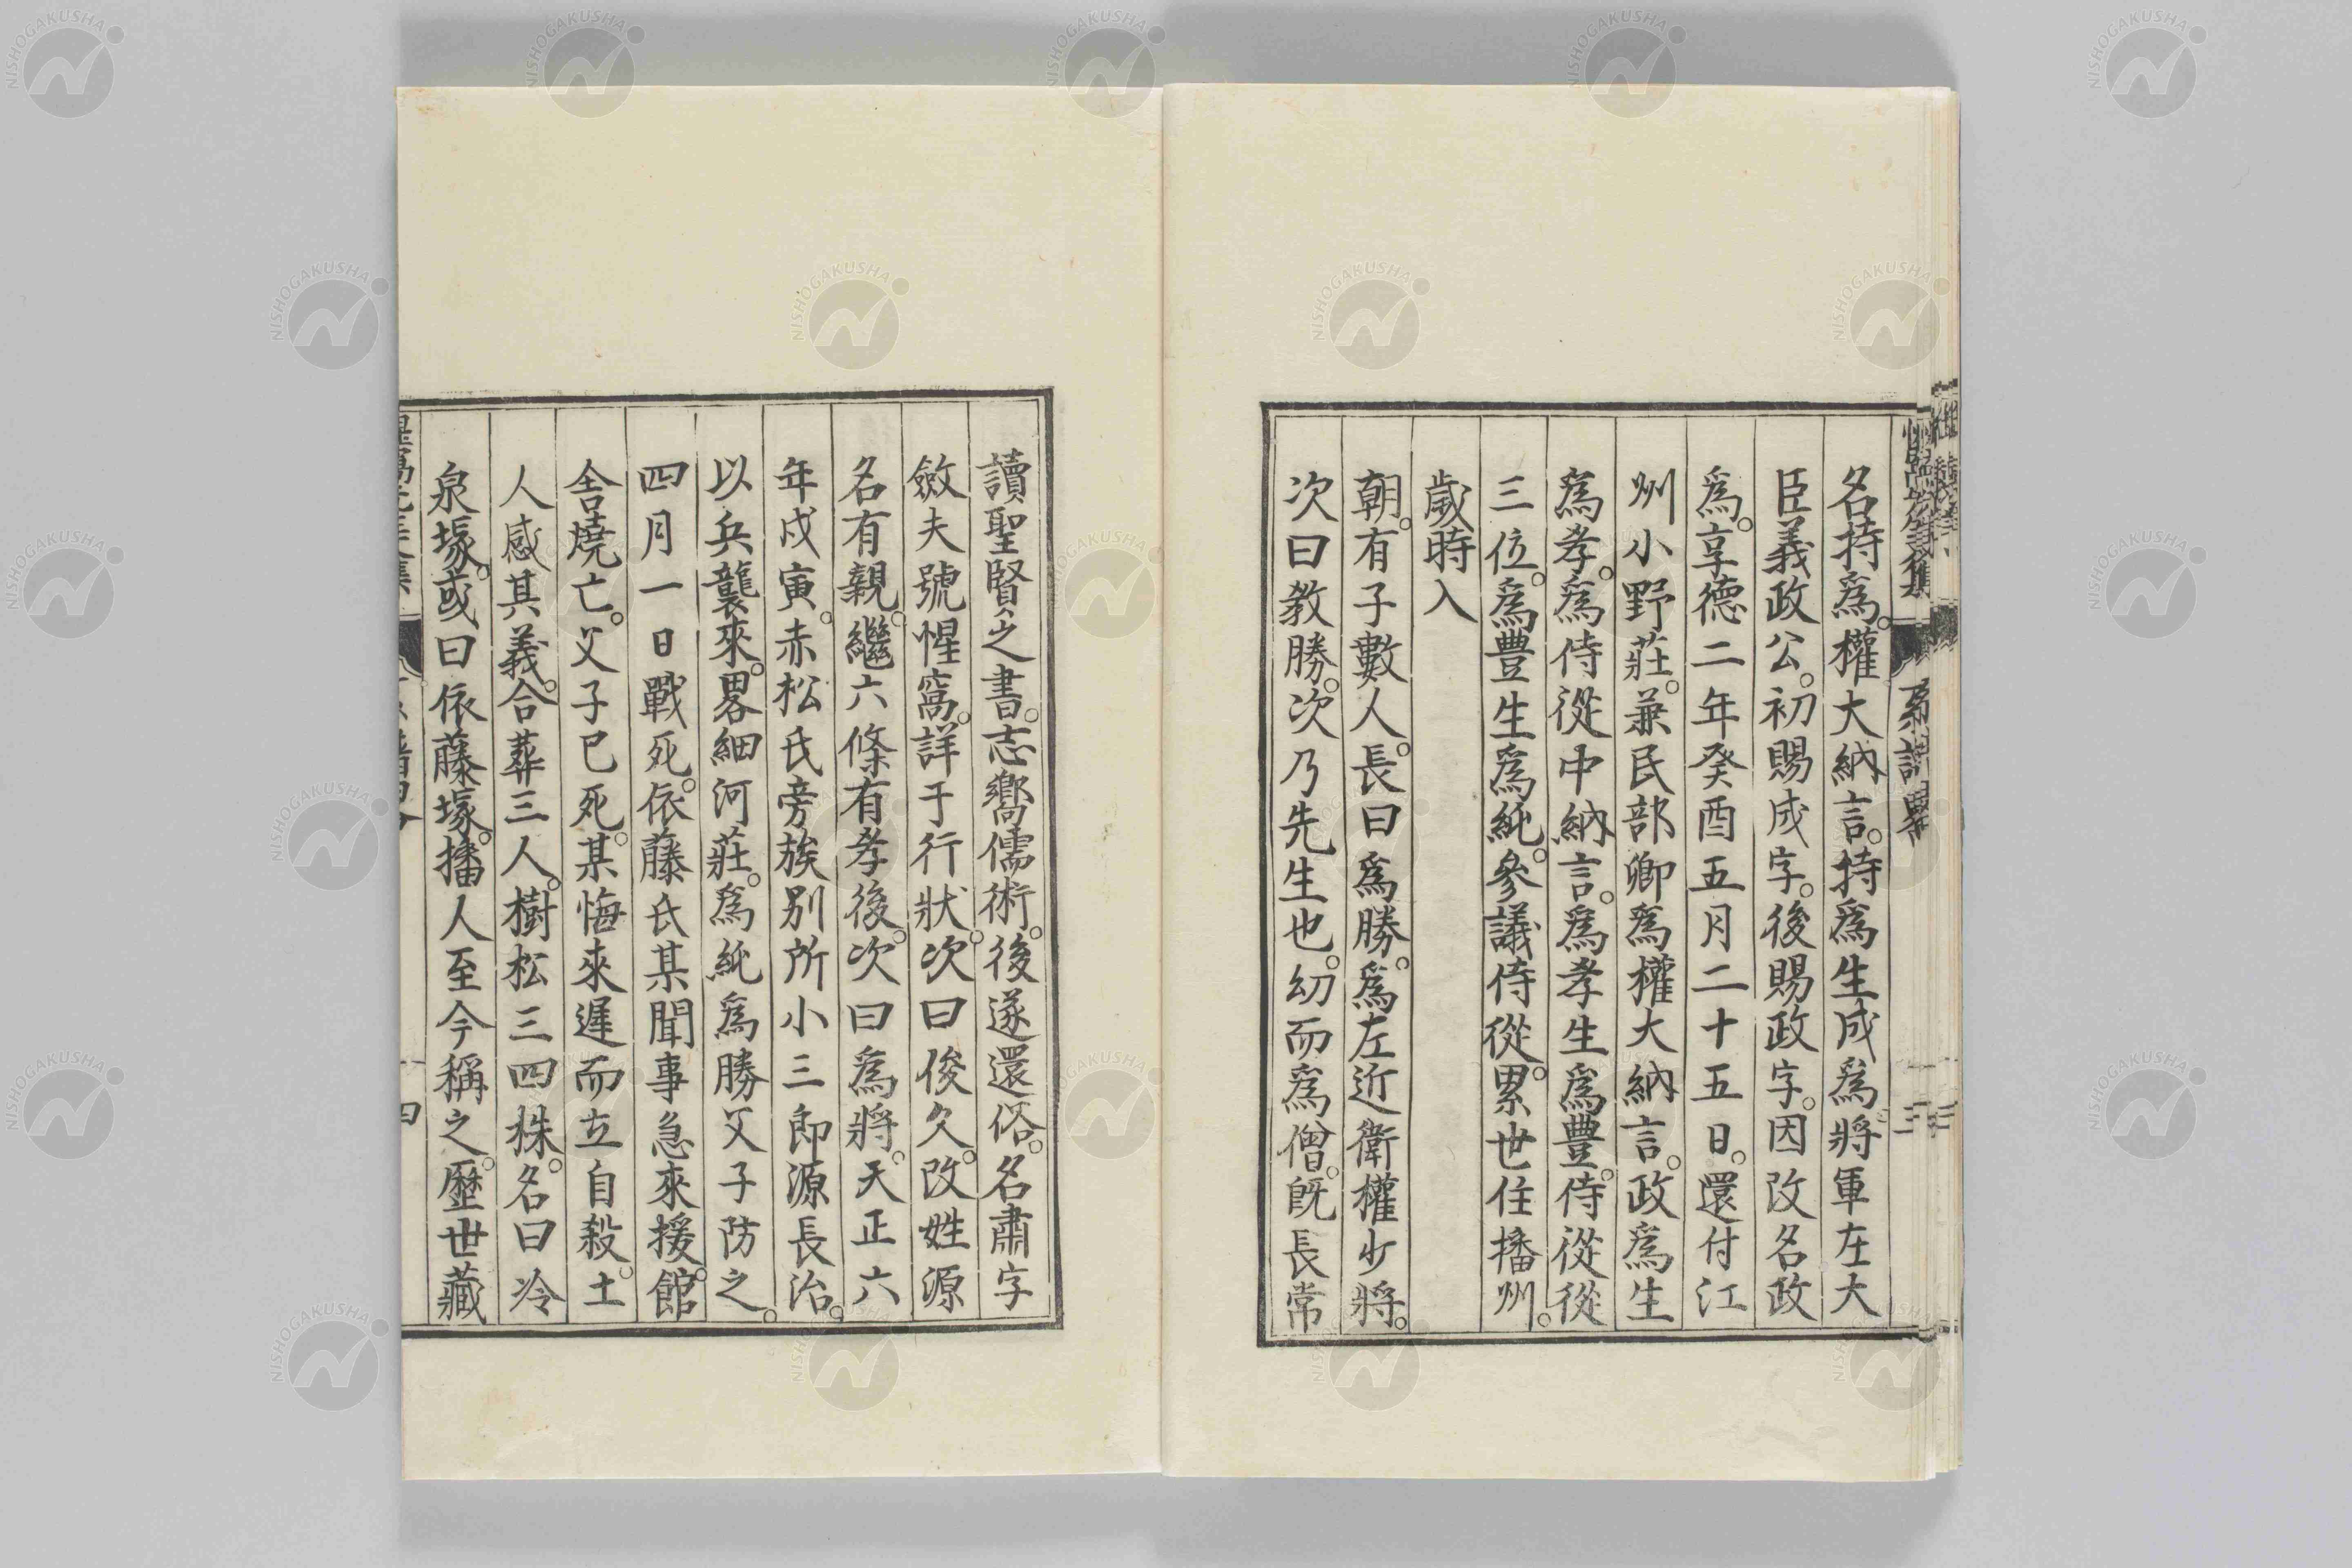 名持爲。權大納言。持爲生成爲將軍左大
臣義政公。初賜成字。後賜政字。因改名政
爲。享德二年癸酉五月二十五日。還付江
州小野莊。兼民部卿爲權大納言。政爲生
爲孝。爲侍從中納言。爲孝生爲豐。侍從從
三位。爲豐生爲純。參議侍從。累世住播州。
歲時入
朝。有子數人。長曰爲勝。爲左近衛權少將。
次曰教勝。次乃先生也。幼而爲僧。旣長常
讀聖賢之書。志嚮儒術。後遂還俗。名肅字
斂夫號惺窩。詳于行狀。次曰俊久。改姓源
名有親。繼六條有孝後。次曰爲將。天正六
年戊寅。赤松氏旁族別所小三郎源長治。
以兵襲來。畧細河莊。爲純爲勝父子防之。
四月一日戰死。依藤氏某聞事急來援。館
舍燒亡。父子已死。某悔來遲而立自殺。土
人感其義。合葬三人。樹松三四株。名曰冷
泉塚。或曰依藤塚。播人至今稱之。歷世藏
四
NISHOGAKUSHA